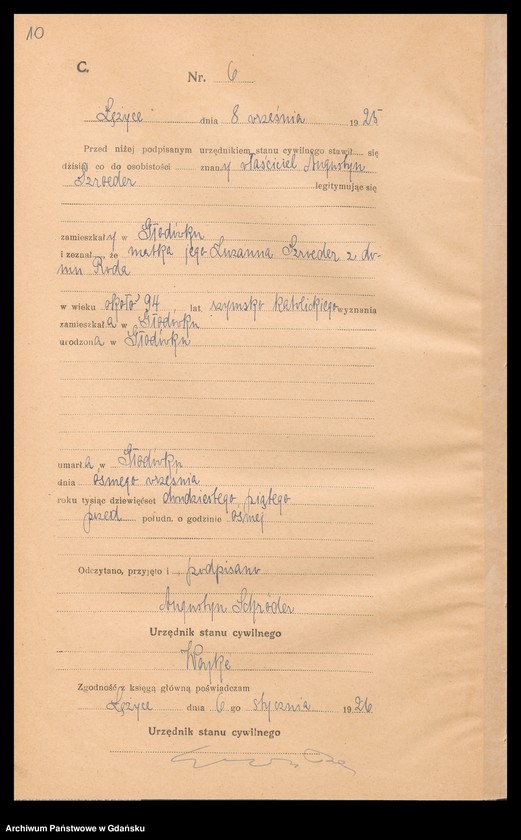 10
C.
Nr. 6
Łężyce dnia 8 września 1925
Przed niżej podpisanym urzędnikiem stanu cywilnego stawił się
dzisiaj co do osobistości znany właściciel Augustyn
Szroeder legitymując się
zamieszkały w Głodówku
i zeznał, że matka jego Zuzanna Szroeder z do-
mu Roda
w wieku około 94 lat rzymsko katolickiego wyznania
zamieszkała w Głodówku
urodzona w Głodówku
umarła w Głodówku
dnia ósmego września
roku tysiąc dziewięćset dwudziestego piątego
przed połudn. o godzinie ósmej
Odczytano, przyjęto i podpisano
Augustyn Schröder
Urzędnik stanu cywilnego
Zgodność z księgą główną poświadczam
Łężyce dnia 6 go stycznia 1926
Urzędnik stanu cywilnego
Archiwum Państwowe w Gdańsku